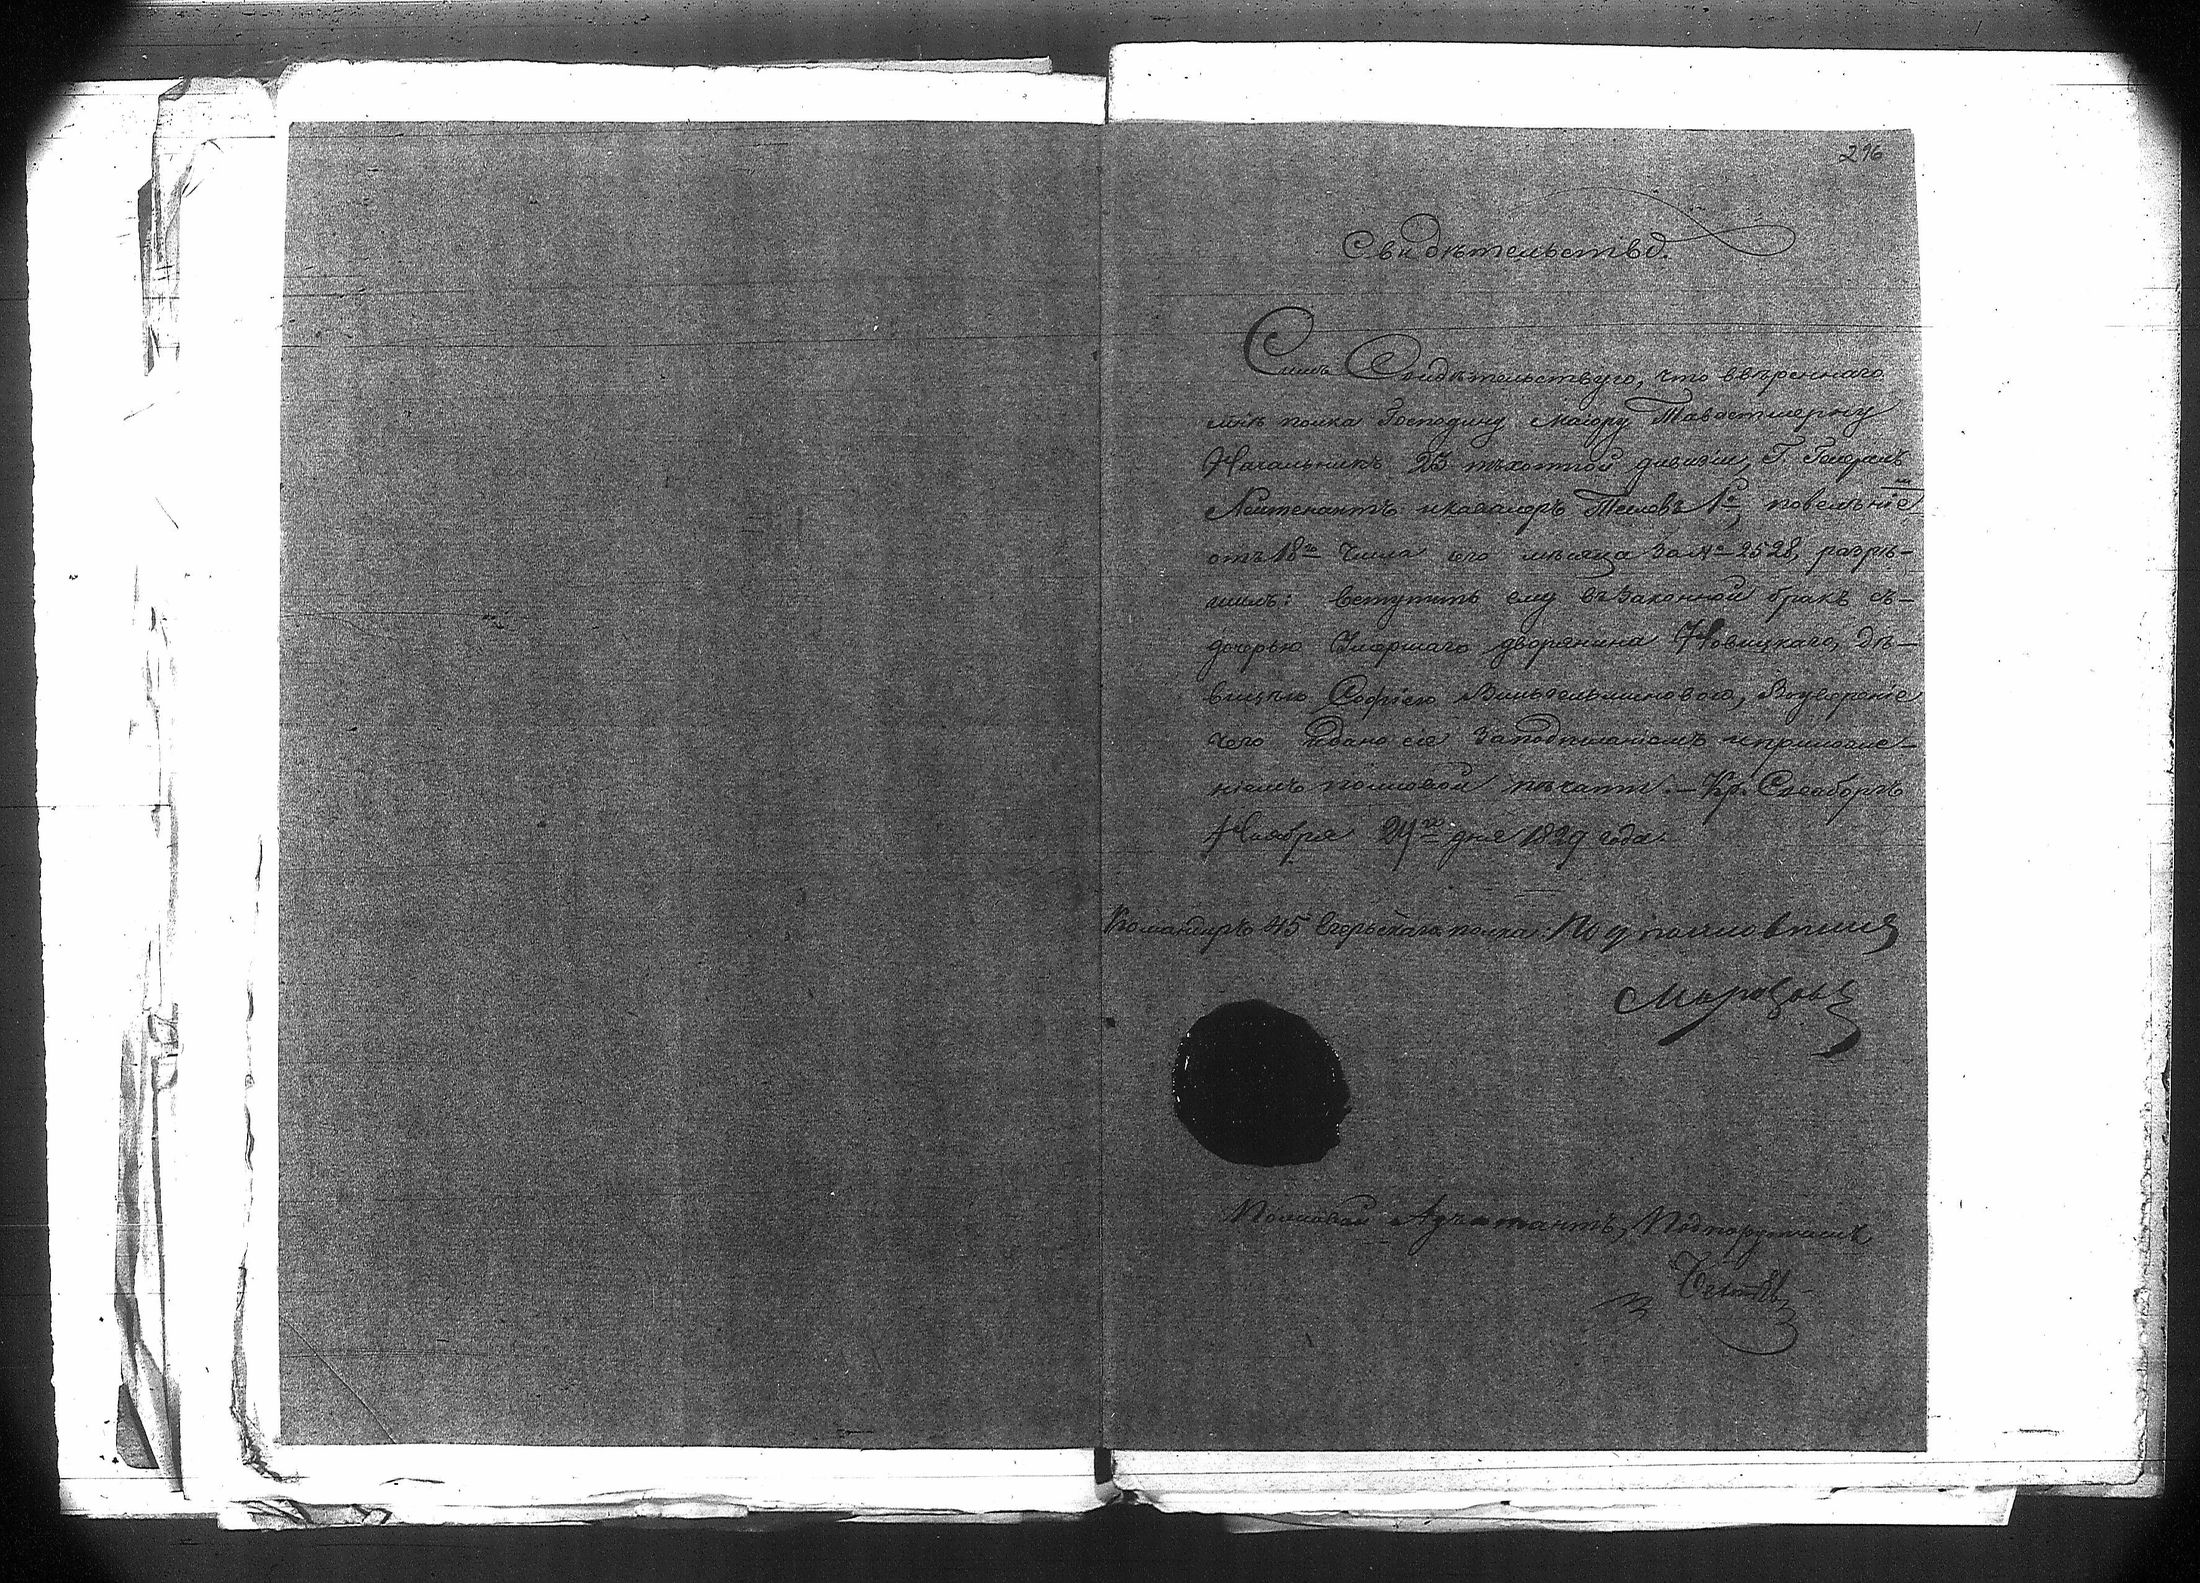 296
Свидѣтельство.
Симъ Свидѣтельствую, что ввѣреннаго
мнѣ полка Господину Маіору Тавастшерну
Начальникъ 23 пѣхотной дивизіи, Г. Генералъ
Лейтенантъ икавалеръ Тешовъ 1й, повелѣніе
отъ 18го числа сего мѣсяца за № 2528, разрѣ-
шилъ: вступить ему въ Законной бракъ съ-
дочерью Умершаго дворянина Новицкаго, дѣ-
вицею Софіею Вильгельминовою, Вътуверение
чего идано сіе Заподписаніемъ иприложе-
ніемъ полковой пѣчати. - Кр. Свеаборгъ
Ноября 24го дня 1829 года.
Командиръ 45 Егерьскаго полка: Подполковникъ
Полковой Адъютантъ, Подпорутчикъ